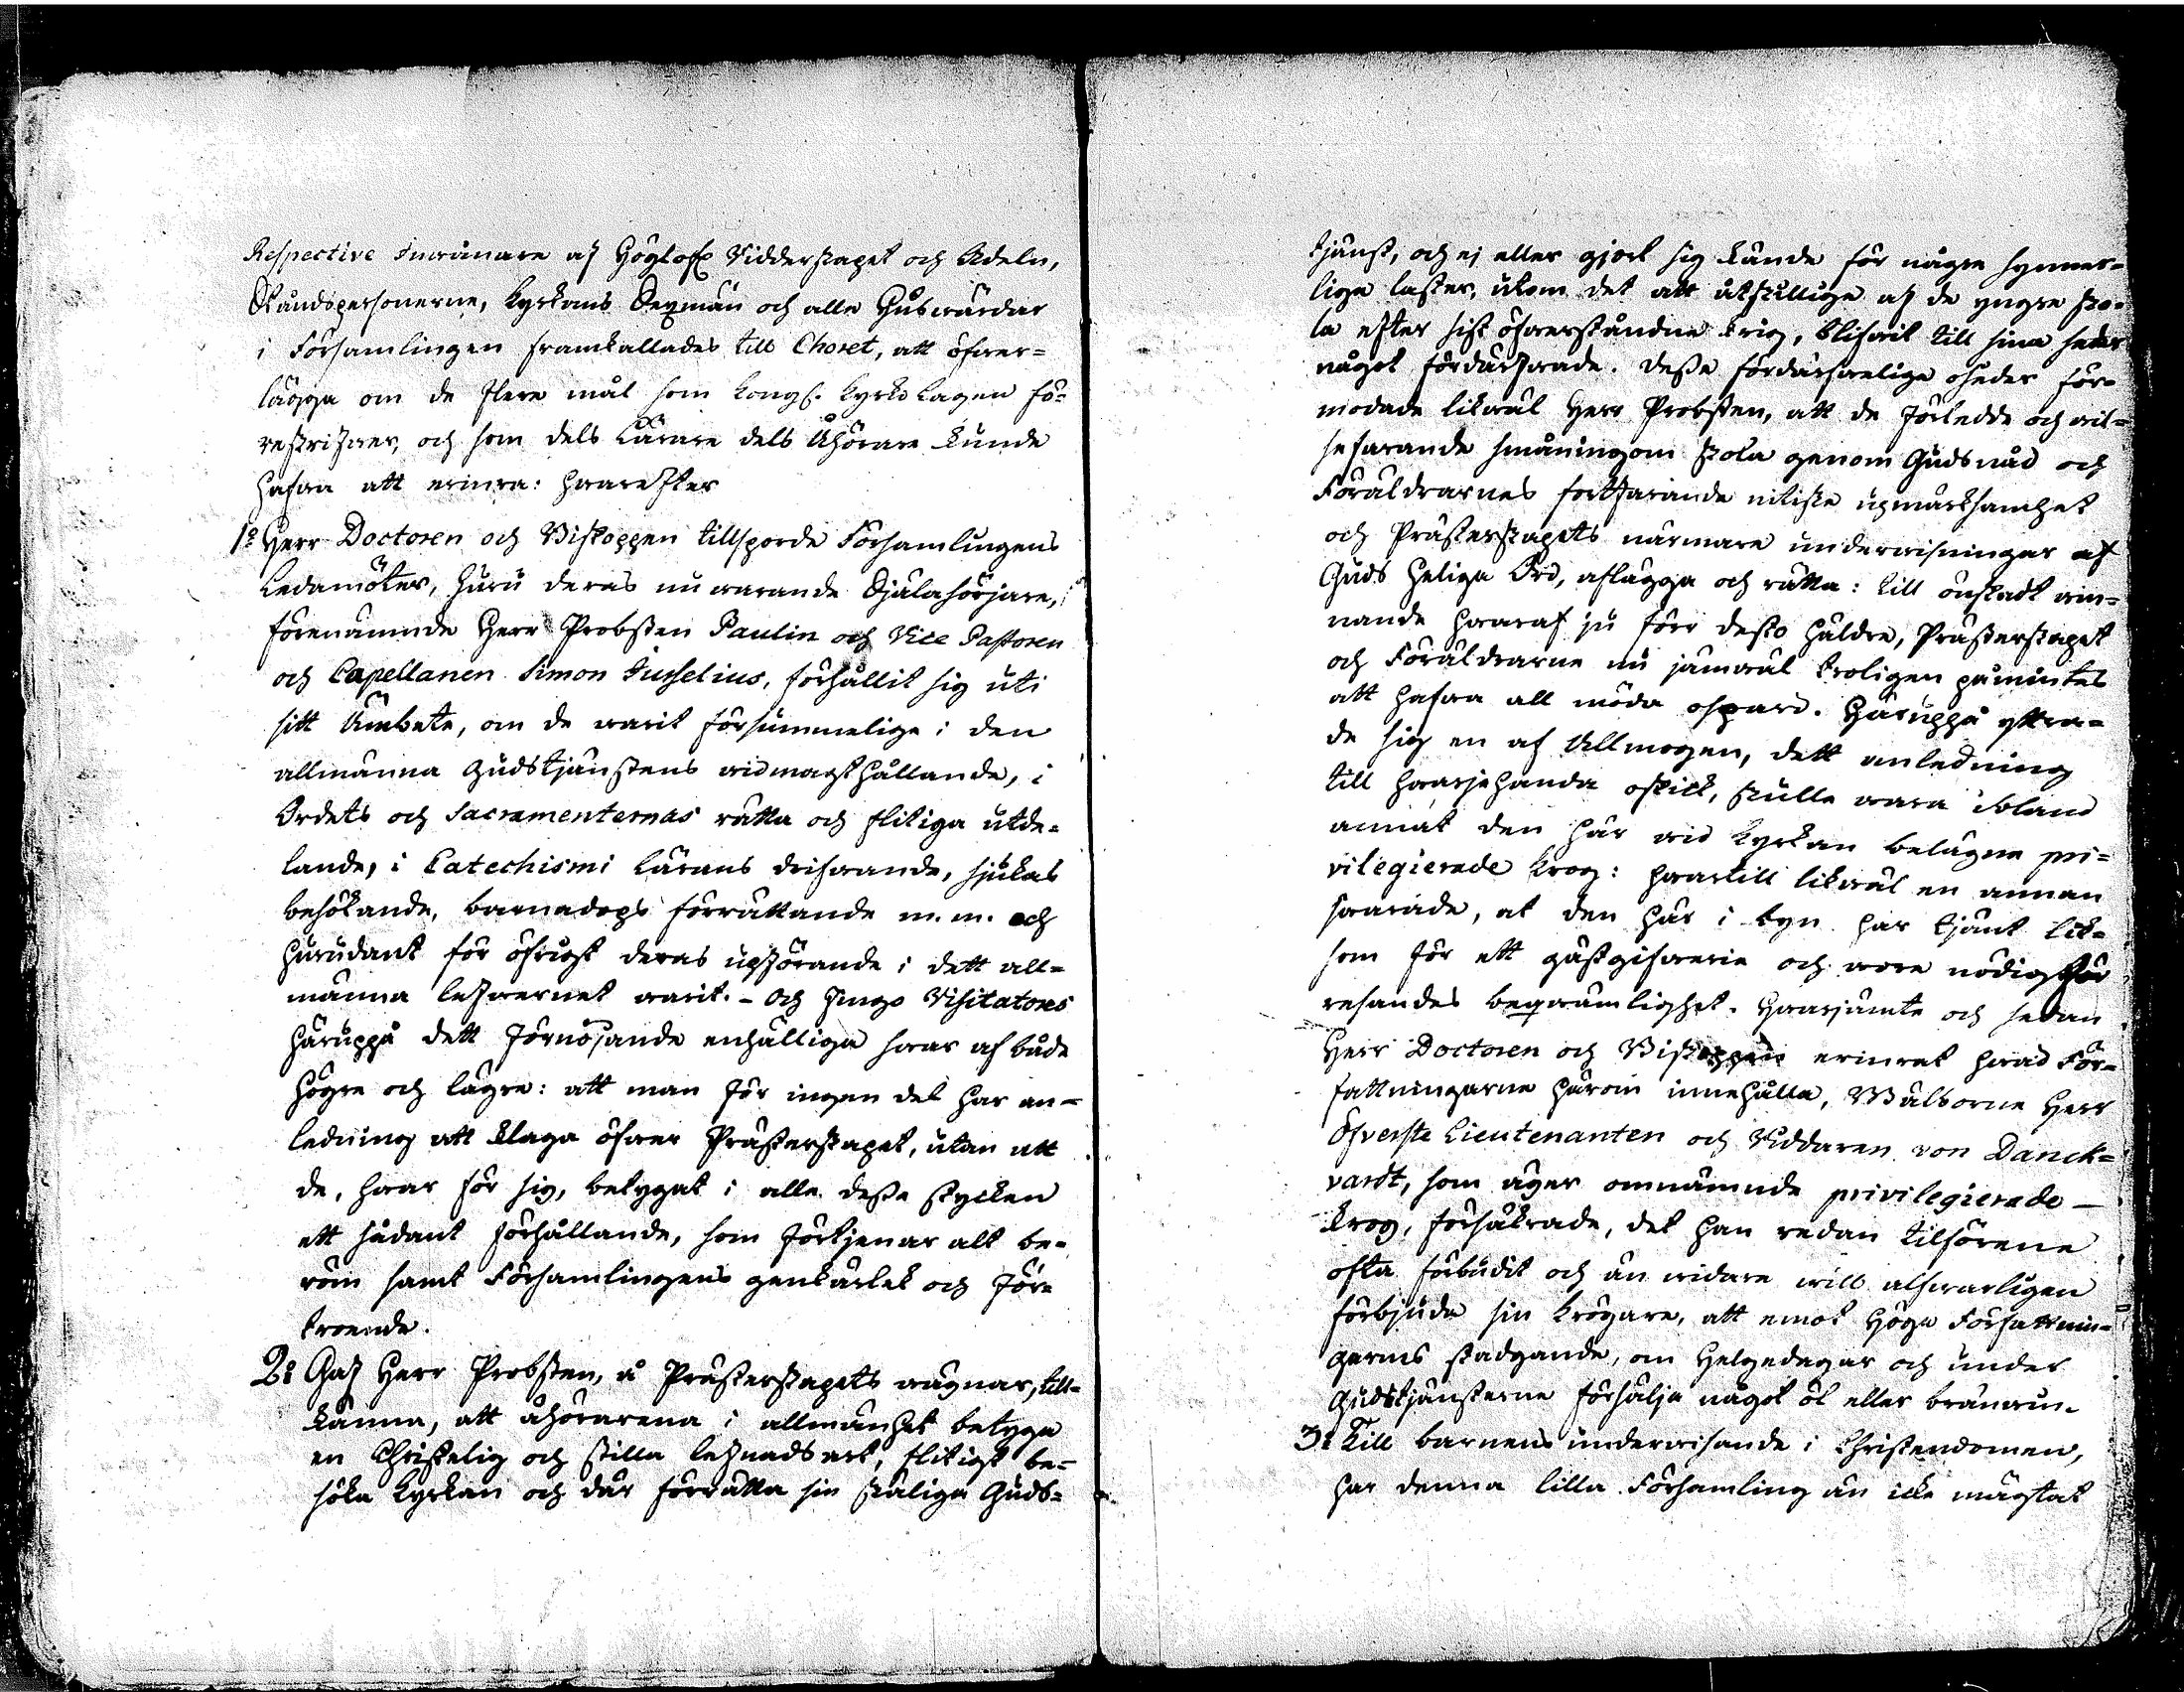 Respective Inwånare af Höglofl. Ridderskapet och Adeln,
Ståndspersonerne, Kyrkans Sexmän och alla Huswärdar
i Församlingen framkallades till Choret, att öfwer=
lägga om de flere mål som Kongl. Kyrko Lagen fö=
reskrifwer, och som dels Lärare dels Åhörare kunde
hafwa att erinra: hwarefter
1o Herr Doctoren och Biskoppen tillsporde Församlingens
Ledamöter, huru deras nu warande Själasörjare,
förenämnde Herr Probsten Paulin och Vice Pastoren
och Capellanen Simon Jusselius, förhållit sig uti
sitt Ämbete, om de warit försummelige i den
allmänna Gudstjänstens widmagthållande, i
Ordets och Sacramenternas rätta och flitiga utde=
lande, i Catechismi Lärans drifwande, sjukas
besökande, barnadops förrättande m. m. och
hurudant för öfrigt deras upförande i dett all=
männa lefwernet warit. – Och fingo Visitatores
häruppå dett förnöjande enhälliga swar af både
högre och lägre: att man för ingen del har an=
ledning att klaga öfwer Prästerskapet, utan att
de, hwar för sig, betygat i alla desse stycken
ett sådant förhållande, som förtjenar alt be=
röm samt Församlingens genkärlek och för=
troende.
2o Gaf Herr Probsten, å Prästerskapets wägnar, till=
känna, att åhörarena i allmänhet betyga
en Christelig och stilla lefnadsart, flitigt be=
söka Kyrkan och där förrätta sin skäliga Guds=
tjänst, och ej eller gjort sig kände för några synner=
liga laster, utom det att åtskillige af de yngre sko=
la efter sist öfwerståndne krig, blifwit till sina seder
något fördärfwade. Dessa fördärfwelige oseder för=
modade likwäl Herr Probsten, att de förledde och wil=
sefarande småningom skola genom Guds nåd och
Föräldrarnes fortfarande nitiska upmärksamhet
och Prästerskapets närmare underwisningar af
Guds heliga Ord, aflägga och rätta: till önskadt win=
nande hwaraf ju förr desto häldre, Prästerskapet
och Föräldrarne nu jämwäl troligen påmintes
att hafwa all möda ospard. Häruppå yttra=
de sig en af Allmogen, dett anledning
till hwarjehanda oskick, skulle wara ibland
annat den här wid Kyrkan belägne pri=
vilegierade krog: hwartill likwäl en annan
swarade, at den här i byn har tjänt lik=
som för ett gästgifwerie och wore nödig för
resandes beqwämlighet. Hwarjämte och sedan
Herr Doctoren och Biskoppen erinrat hwad För=
fattningarne härom innehålla, Wälborne Herr
Öfverste Lieutenanten och Riddaren von Danck=
vardt, som äger omnämnde privilegierade –
krog, försäkrade, det han redan tilförene
ofta förbudit och än widare will alfwarligen
förbjuda sin krögare, att emot Höga Författnin=
garnes stadgande, om Helgedagar och under
Gudstjänsterne försälja något öl eller bränwin.
3o Till barnens underwisande i Christendomen,
har denna lilla Församling än icke mägtat